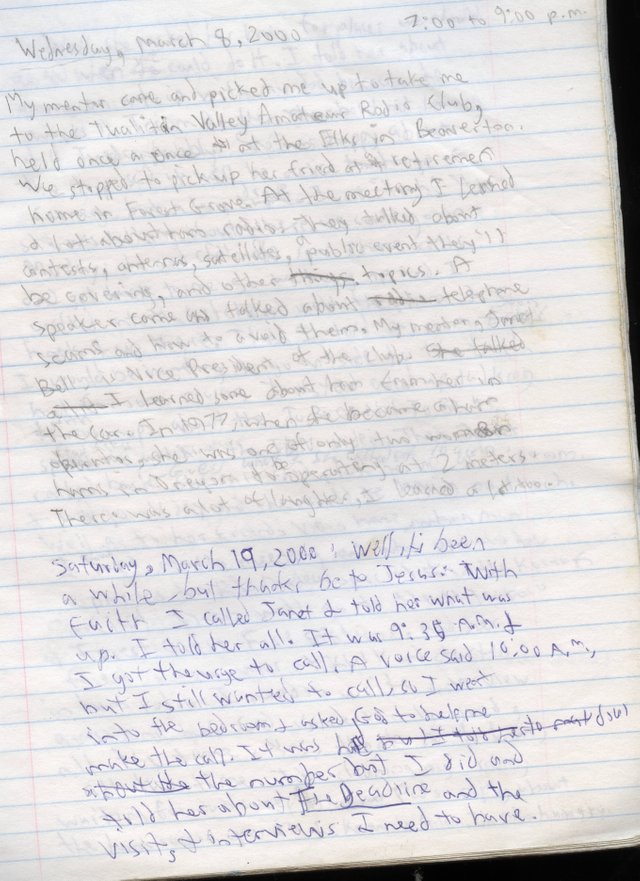 Wednesday, March 8, 2000 7:00 to 9:00 p.m.
My mentor came and picked me up to take me
to the Tualitin Valley Amateur Radio Club,
held once a once at the Elks in Beaverton.
We stopped to pick up her friend at retiremen
home in Forest Grove. At the meeting I learned
a lot about ham radio. They talked about
contests, antennas, satellites, public event they'll
be covering, and other topics. A
speaker came and talked about telephone
scams and how to avoid them. My mentor, Janet
Ball, is Vice President of the club. She talked
I learned some about ham from her in
the car. In 1977, when she became a ham
operator, she was one of only two women
hams in Oregon to be operating at 2 meters.
There was a lot of laughter, I learned a lot too.
Saturday, March 19, 2000 : Well, it's been
a while, but thanks be to Jesus. With
faith I called Janet & told her what was
up. I told her all. It was 9:35 A.M. &
I got the urge to call. A voice said 10:00 A.M.,
but I still wanted to call, so I went
into the bedroom & asked God to help me
make the call. It was but I
the number but I did and
told her about The Deadline and the
visits, & interviews I need to have.